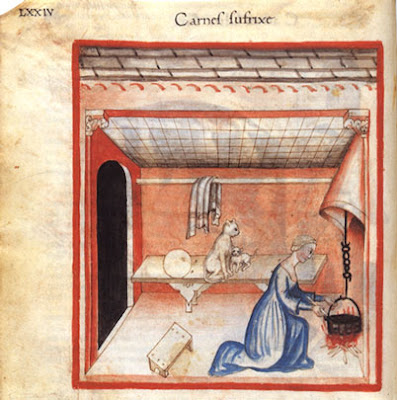 LXXIV
Carnes sufrixe